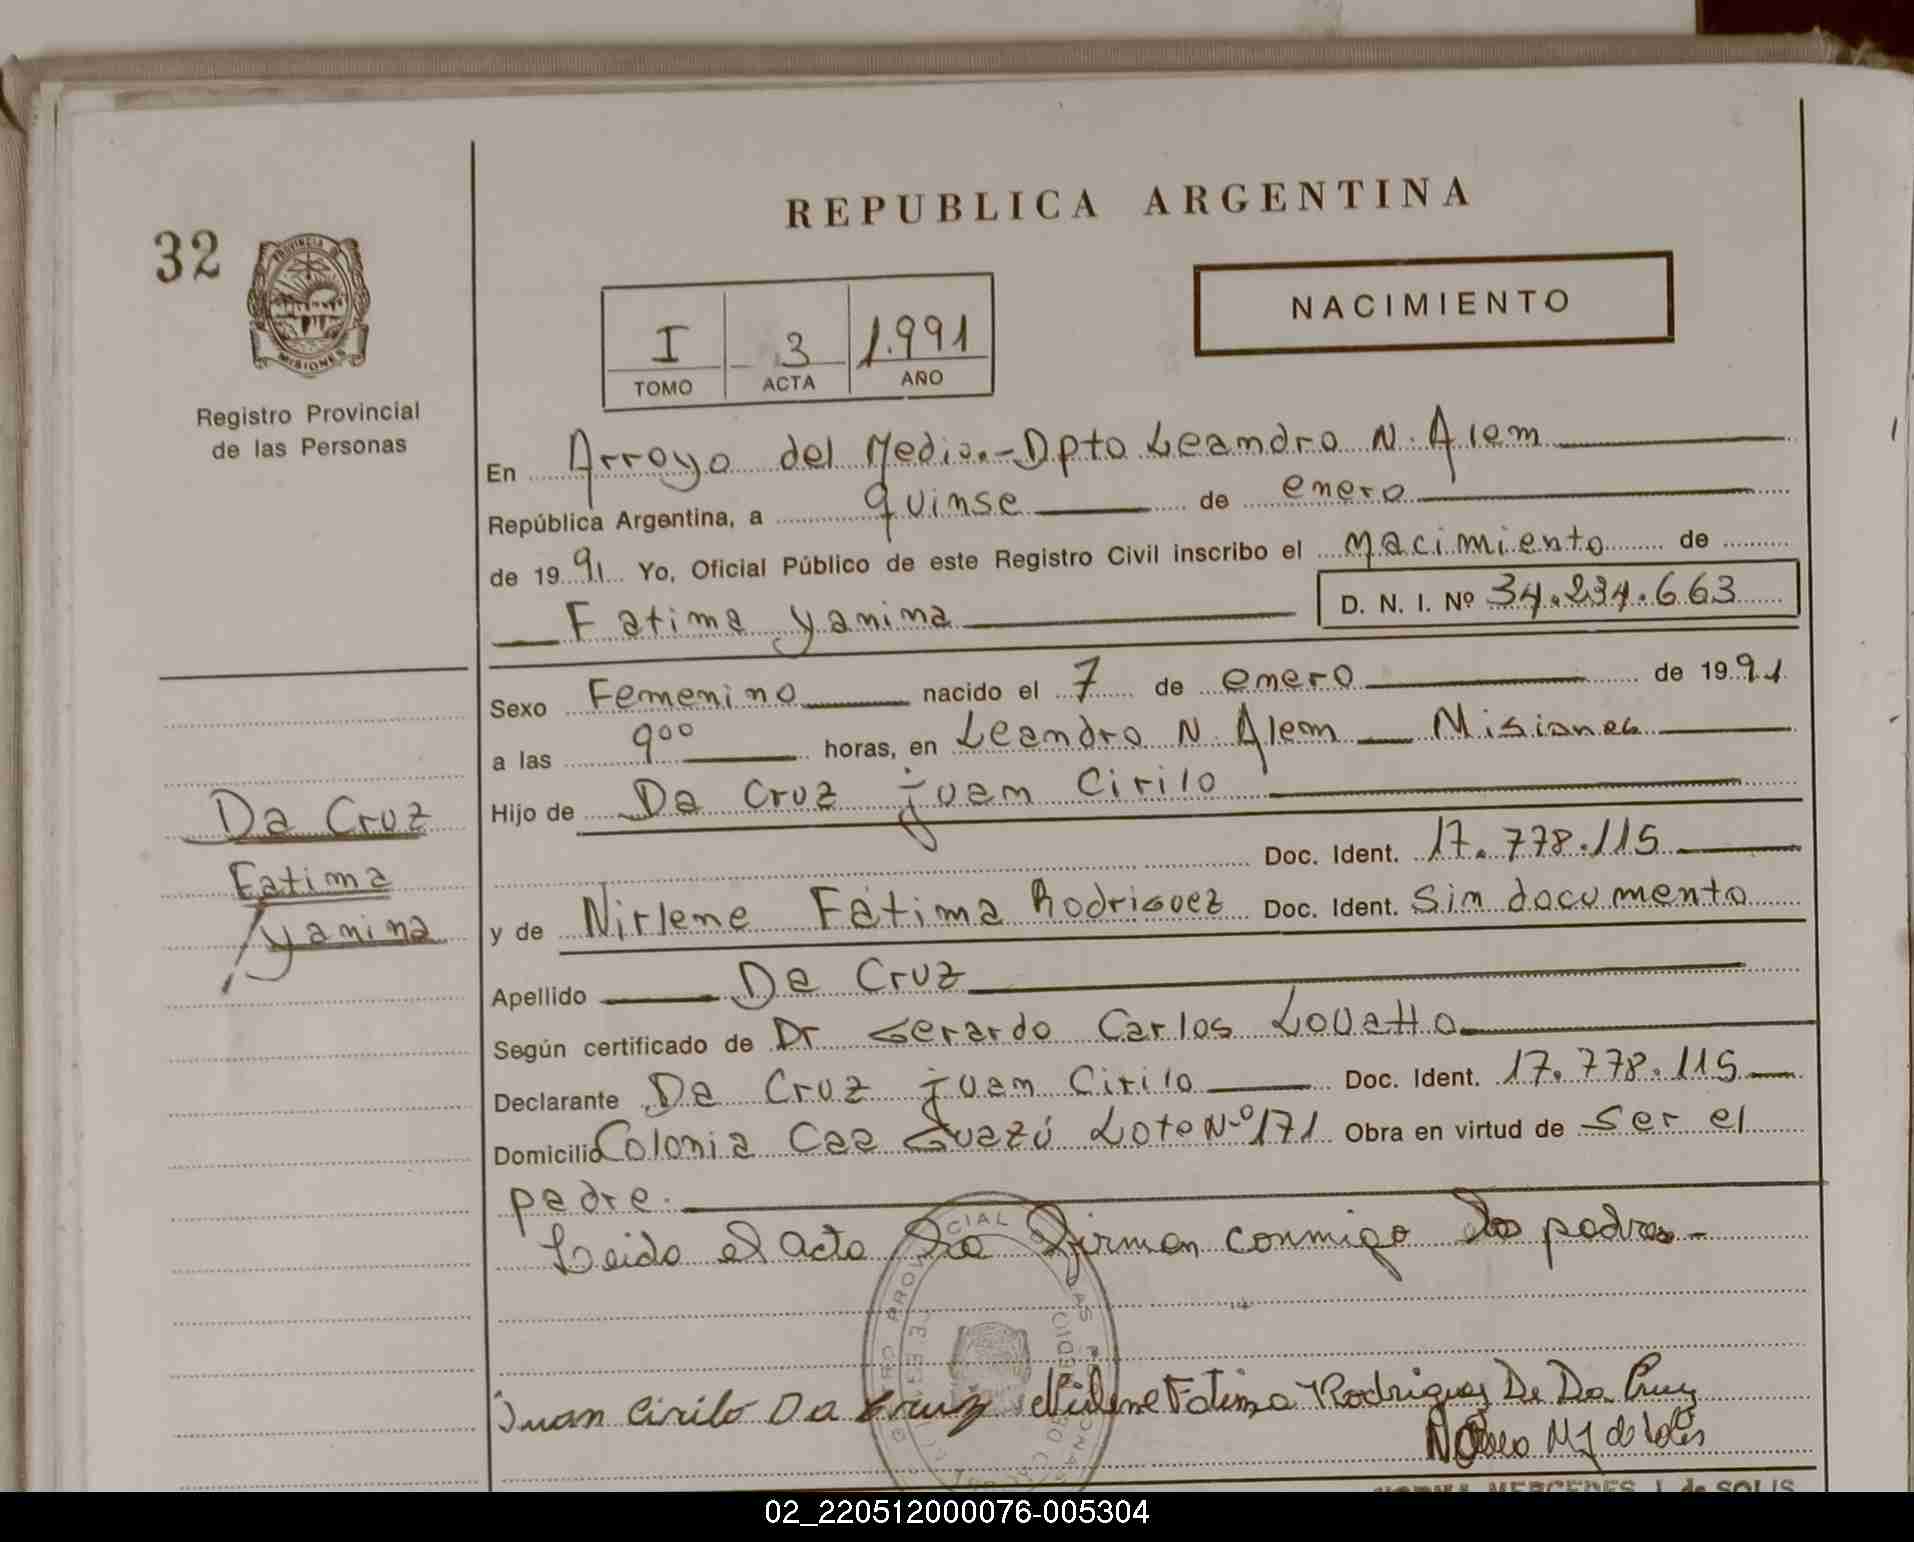 REPUBLICA ARGENTINA
32
PROVINCIA DE
MISIONES
Registro Provincial
de las Personas
I 3 1.991
TOMO ACTA AÑO
NACIMIENTO
En Arroyo del Medio.-Dpto Leandro N. Alem
República Argentina, a quinse de enero
de 1991 Yo, Oficial Público de este Registro Civil inscribo el nacimiento de
Fatima yanina D. N. I. Nº 34.234.663
Sexo Femenino nacido el 7 de enero de 1991
a las 9⁰⁰ horas, en Leandro N. Alem Misiones
Hijo de Da Cruz juan Cirilo
Doc. Ident. 17.778.115
y de Nirlene Fátima Rodriguez Doc. Ident. Sin documento
Apellido Da Cruz
Según certificado de Dr Gerardo Carlos Lovatto
Declarante Da Cruz juan Cirilo Doc. Ident. 17.778.115
Domicilio Colonia Caa Guazú Lote Nº 171 Obra en virtud de ser el
padre.
Leida el acta la firman conmigo los padres-
Da Cruz
Fatima
yanina
Juan Cirilo Da Cruz Nirlene Fatima Rodriguez De Da Cruz
NORMA MERCEDES J. de SOLIS
02_220512000076-005304